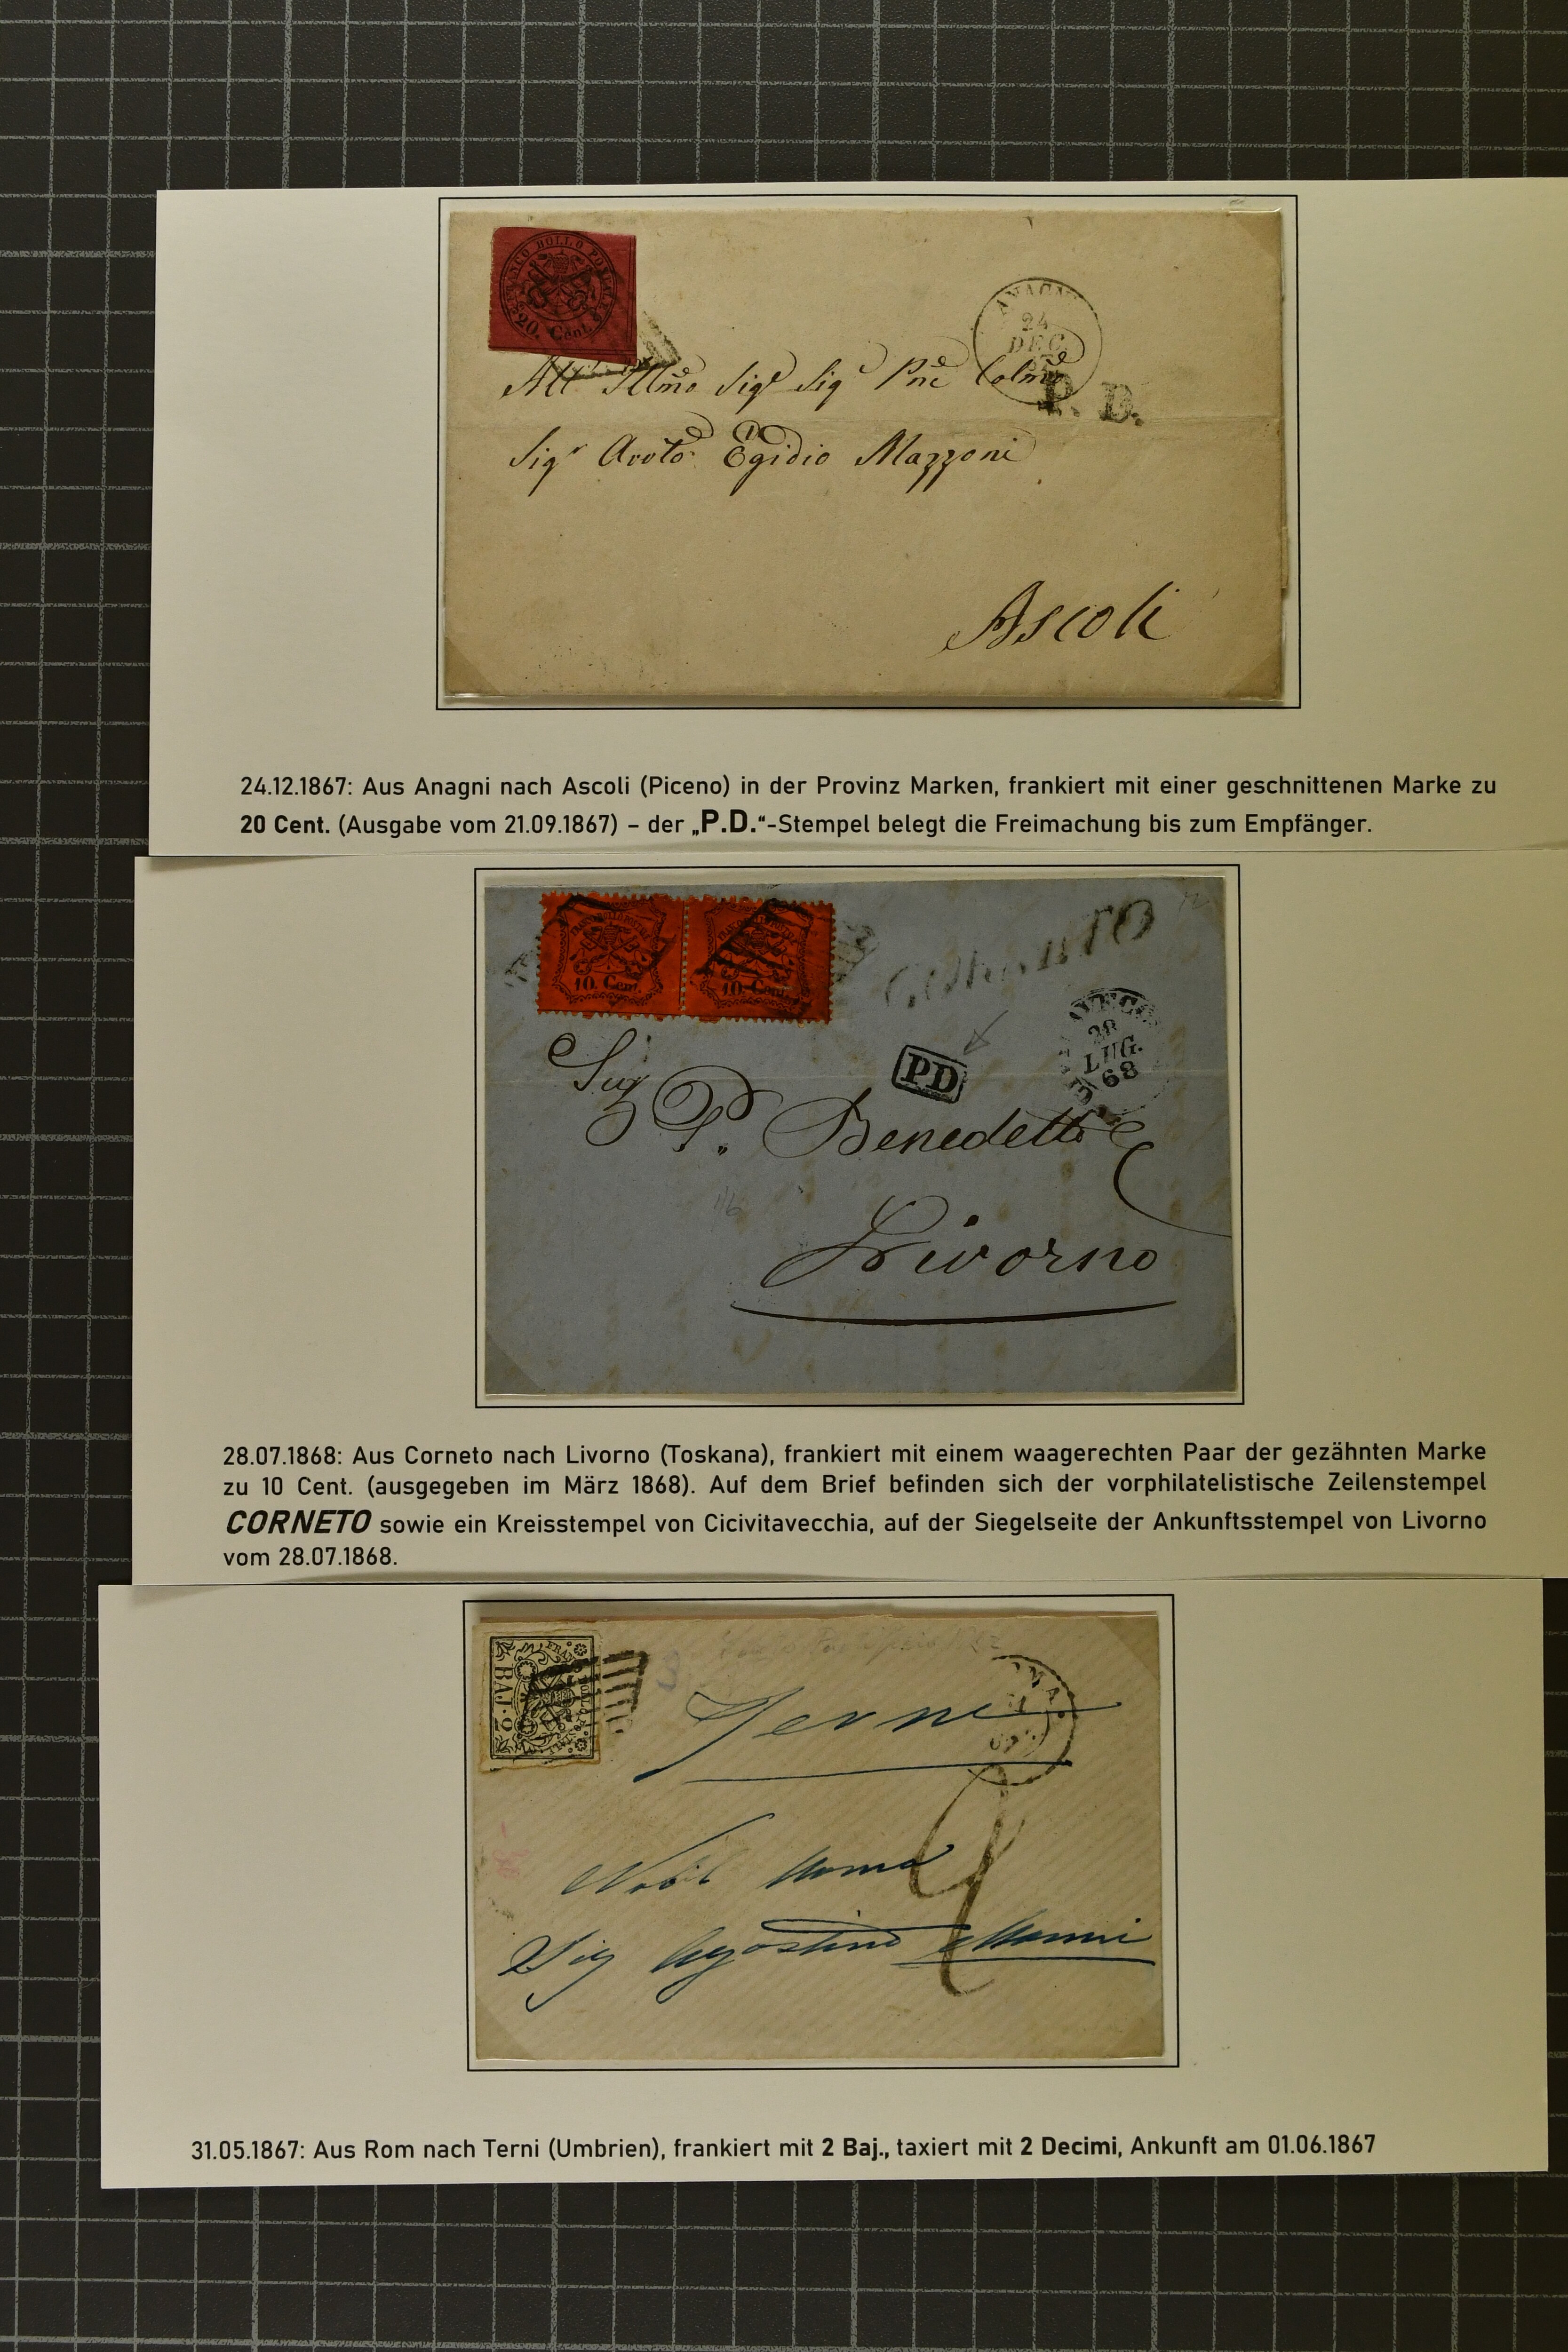 FRANCO BOLLO POSTALE
20. Cent.
ANAGNI
24
DEC.
P. D.
All' Illmo Sigr Sigr Pne Colmo
Sigr Egidio Mazzoni
Ascoli
24.12.1867: Aus Anagni nach Ascoli (Piceno) in der Provinz Marken, frankiert mit einer geschnittenen Marke zu
20 Cent. (Ausgabe vom 21.09.1867) – der „P.D.“-Stempel belegt die Freimachung bis zum Empfänger.
FRANCO BOLLO POSTALE
10. Cent.
FRANCO BOLLO POSTALE
10. Cent.
28
LUG.
68
PD
Sig
P. Benedetti
Livorno
28.07.1868: Aus Corneto nach Livorno (Toskana), frankiert mit einem waagerechten Paar der gezähnten Marke
zu 10 Cent. (ausgegeben im März 1868). Auf dem Brief befinden sich der vorphilatelistische Zeilenstempel
CORNETO sowie ein Kreisstempel von Cicivitavecchia, auf der Siegelseite der Ankunftsstempel von Livorno
vom 28.07.1868.
BAJ·2
Terni
2
Nobil Uomo
Sig Agostino Manni
31.05.1867: Aus Rom nach Terni (Umbrien), frankiert mit 2 Baj., taxiert mit 2 Decimi, Ankunft am 01.06.1867